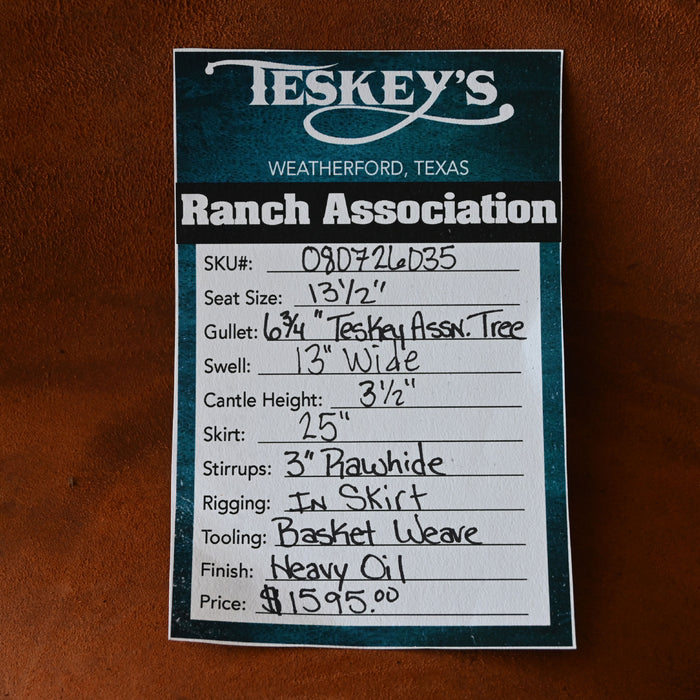 TESKEY'S
WEATHERFORD, TEXAS
Ranch Association
SKU#: 080726035
Seat Size: 13 1/2"
Gullet: 6 3/4" Teskey Assn. Tree
Swell: 13" Wide
Cantle Height: 3 1/2"
Skirt: 25"
Stirrups: 3" Rawhide
Rigging: In Skirt
Tooling: Basket Weave
Finish: Heavy Oil
Price: $1595.00